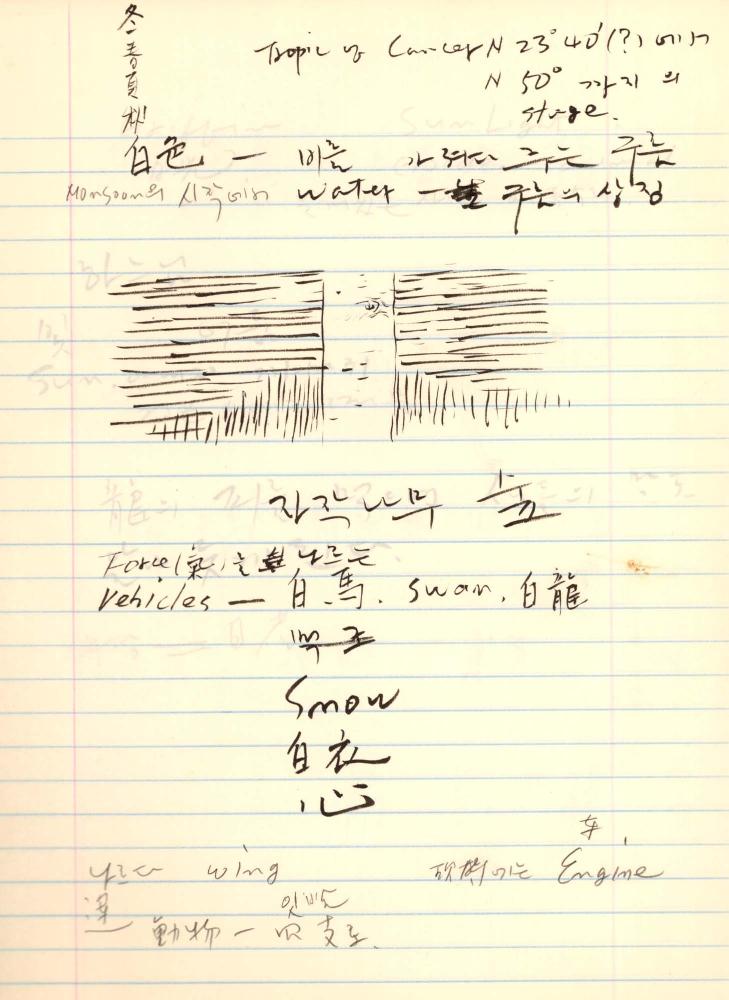 冬春夏秋
Tropic of Cancer N 23° 40'(?) 에서
N 50° 까지 의
stage.
白色 — 비를 가져다 주는 구름
Monsoon의 시작에서 water — 구름의 상징
자작나무 숲
Force(氣)를 나르는
vehicles — 白馬. swan. 白龍
Snow
白衣
心
나르다 wing 車
에는 Engine
動物 — 四支로